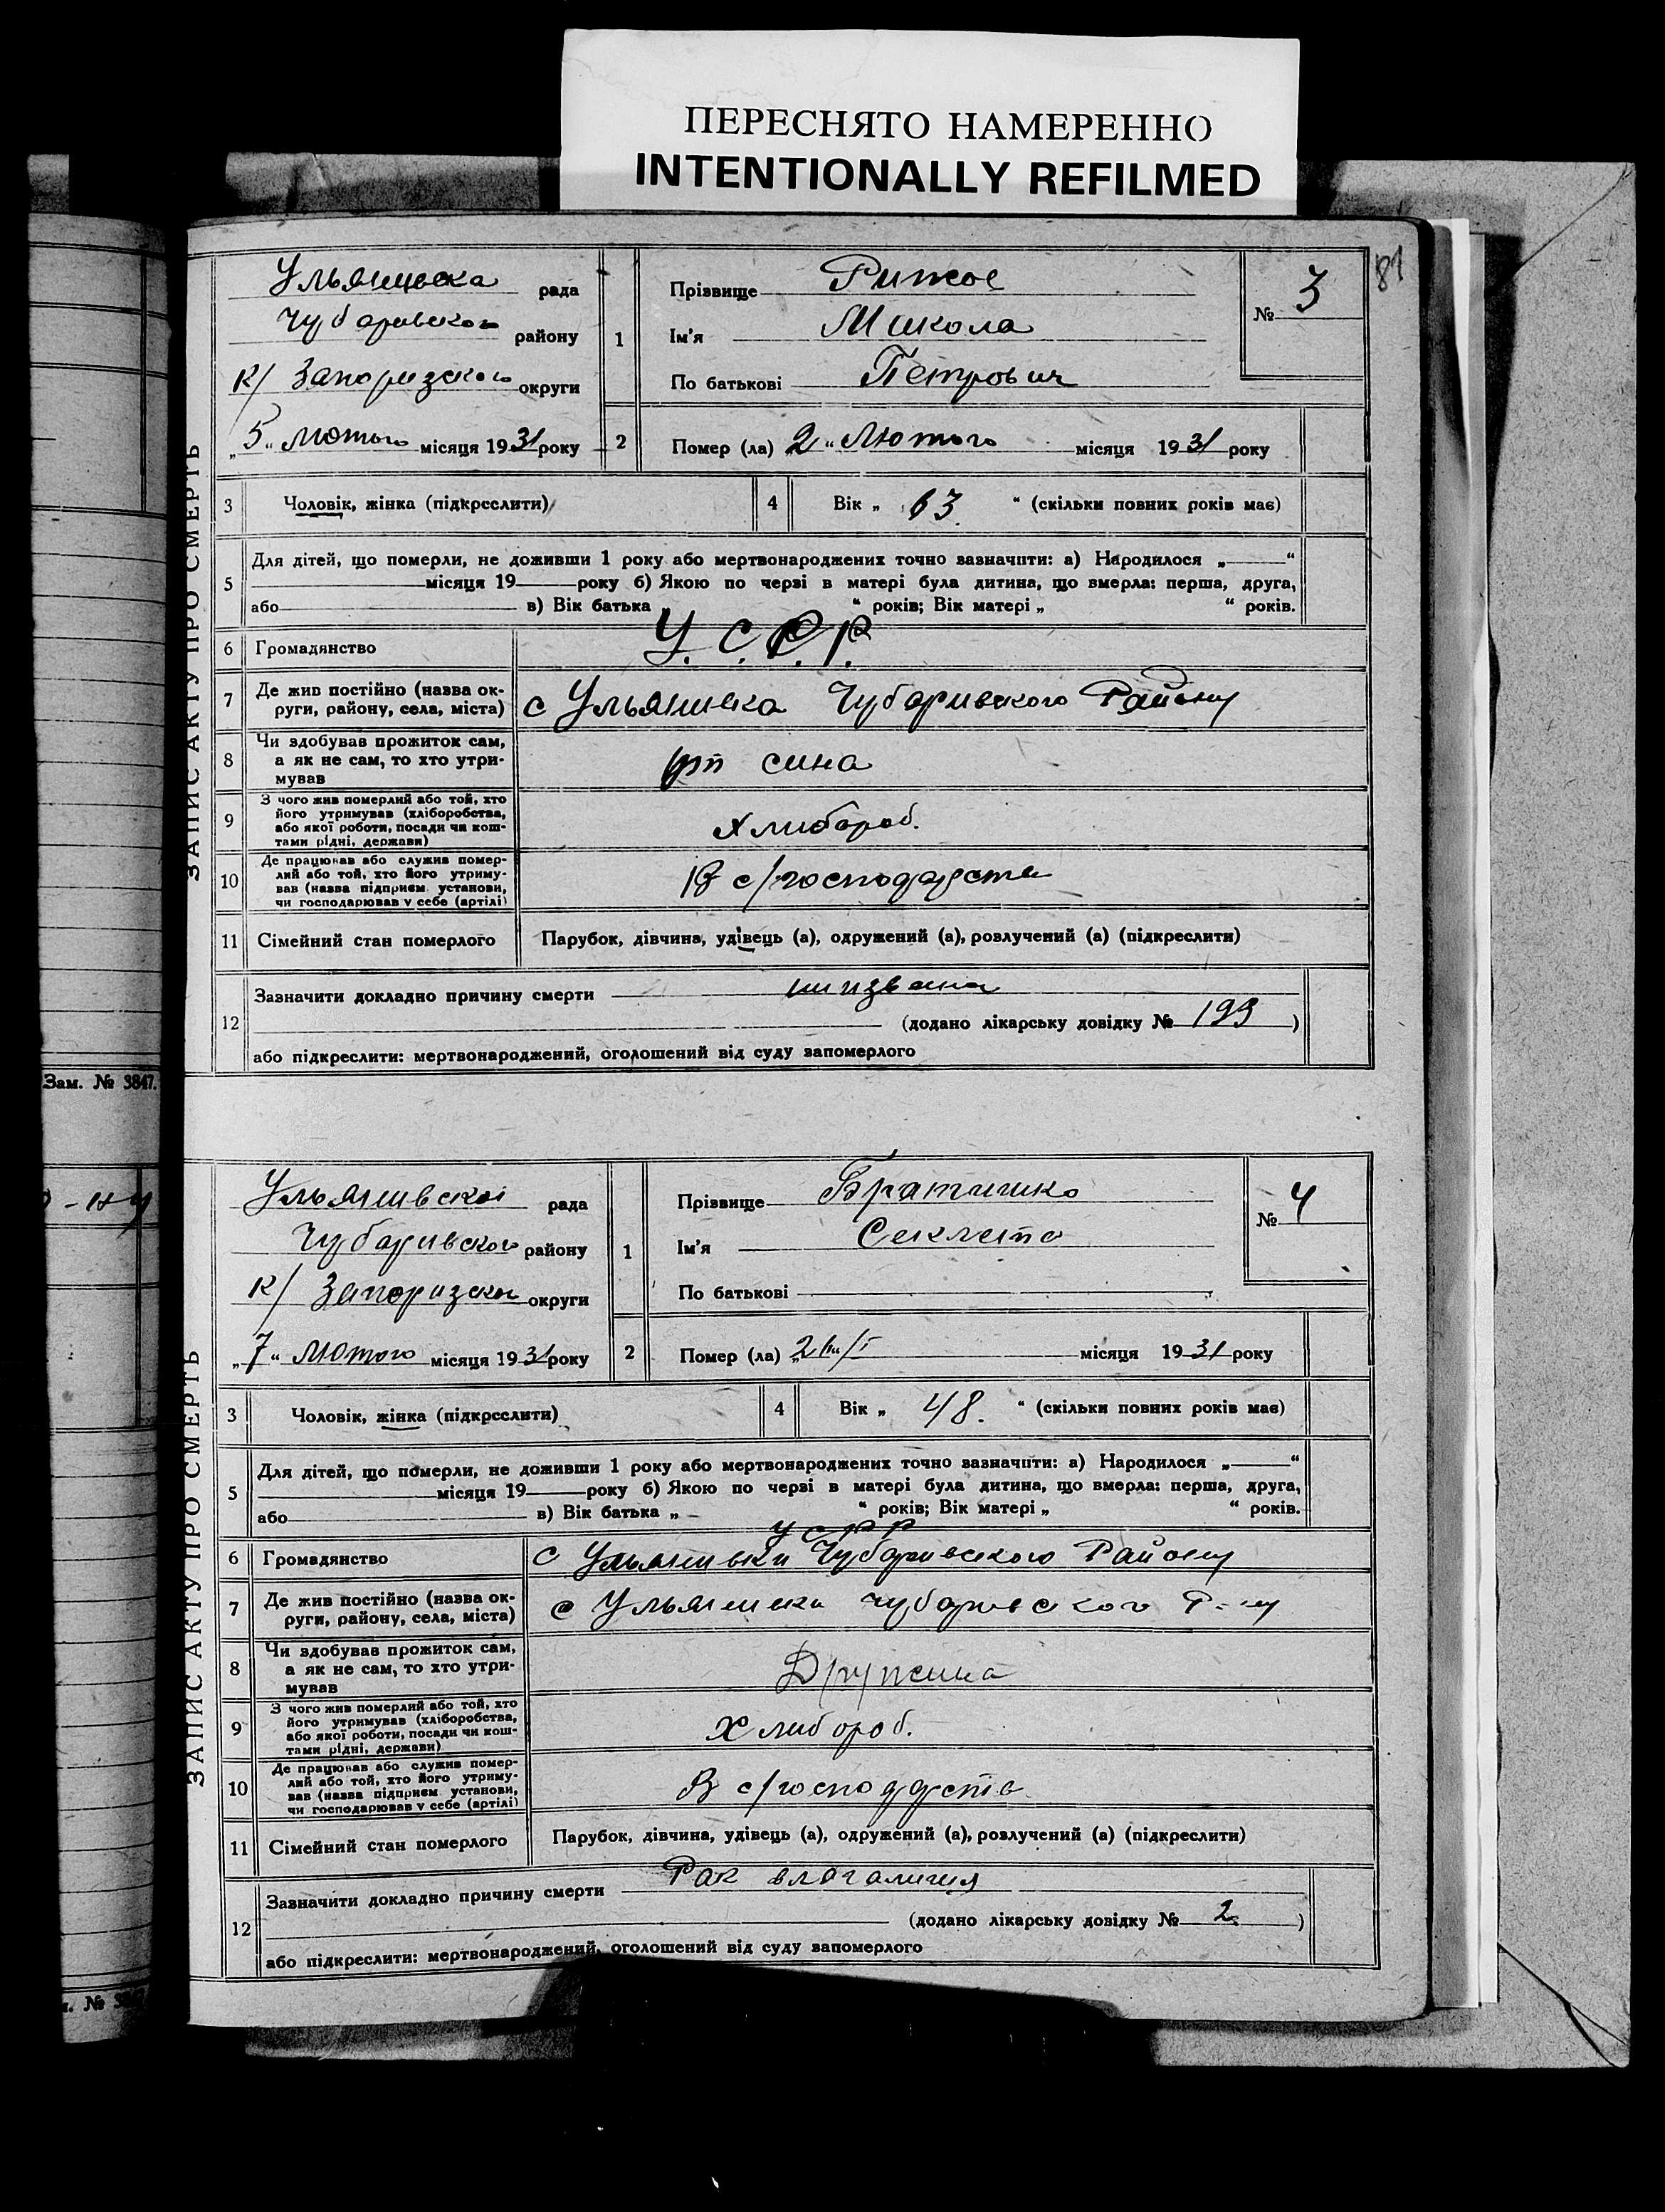 ПЕРЕСНЯТО НАМЕРЕННО
INTENTIONALLY REFILMED
81
ЗАПИС АКТУ ПРО СМЕРТЬ
Ульянивска рада
Чубаривского району
К/ Запоризского округи
„5“ Лютого місяця 1931 року
1 Прізвище Рижов
Ім'я Микола
По батькові Петрович
№ 3
2 Помер (ла) „2“ Лютого місяця 1931 року
3 Чоловік, жінка (підкреслити)
4 Вік „ 63 “ (скільки повних років має)
5 Для дітей, що померли, не доживши 1 року або мертвонароджених точно зазначити: а) Народилося „ “
місяця 19 року б) Якою по черзі в матері була дитина, що вмерла: перша, друга,
або в) Вік батька “ років; Вік матері „ “ років.
6 Громадянство У.С.Р.Р.
7 Де жив постійно (назва ок-
руги, району, села, міста) с Ульянивка Чубаривского Району
8 Чи здобував прожиток сам,
а як не сам, то хто утри-
мував сина
9 З чого жив померлий або той, хто
його утримував (хліборобства,
або якої роботи, посади чи кош-
тами рідні, держави) Хлибороб.
10 Де працював або служив помер-
лий або той, хто його утриму-
вав (назва підприєм. установи,
чи господарював у себе (артілі) В с/господарстви
11 Сімейний стан померлого Парубок, дівчина, удівець (а), одружений (а), розлучений (а) (підкреслити)
12 Зазначити докладно причину смерти
(додано лікарську довідку № 199)
або підкреслити: мертвонароджений, оголошений від суду запомерлого
Зам. № 3847.
ЗАПИС АКТУ ПРО СМЕРТЬ
Ульянивскоі рада
Чубаривского району
К/ Запоризскои округи
„7“ Лютого місяця 1931 року
1 Прізвище Братишко
Ім'я Секлета
По батькові
№ 4
2 Помер (ла) місяця 1931 року
3 Чоловік, жінка (підкреслити)
4 Вік „ 48. “ (скільки повних років має)
5 Для дітей, що померли, не доживши 1 року або мертвонароджених точно зазначити: а) Народилося „ “
місяця 19 року б) Якою по черзі в матері була дитина, що вмерла: перша, друга,
або в) Вік батька „ “ років; Вік матері „ “ років.
УСРР
6 Громадянство с Ульянивки Чубаривского Району
7 Де жив постійно (назва ок-
руги, району, села, міста) с Ульянивки Чубаривского Р-ну
8 Чи здобував прожиток сам,
а як не сам, то хто утри-
мував Дружина
9 З чого жив померлий або той, хто
його утримував (хліборобства,
або якої роботи, посади чи кош-
тами рідні, держави) Хлибороб.
10 Де працював або служив помер-
лий або той, хто його утриму-
вав (назва підприєм. установи,
чи господарював у себе (артілі) В с/господарстві
11 Сімейний стан померлого Парубок, дівчина, удівець (а), одружений (а), розлучений (а) (підкреслити)
12 Зазначити докладно причину смерти Рак влагалища
(додано лікарську довідку № 2)
або підкреслити: мертвонароджений, оголошений від суду запомерлого